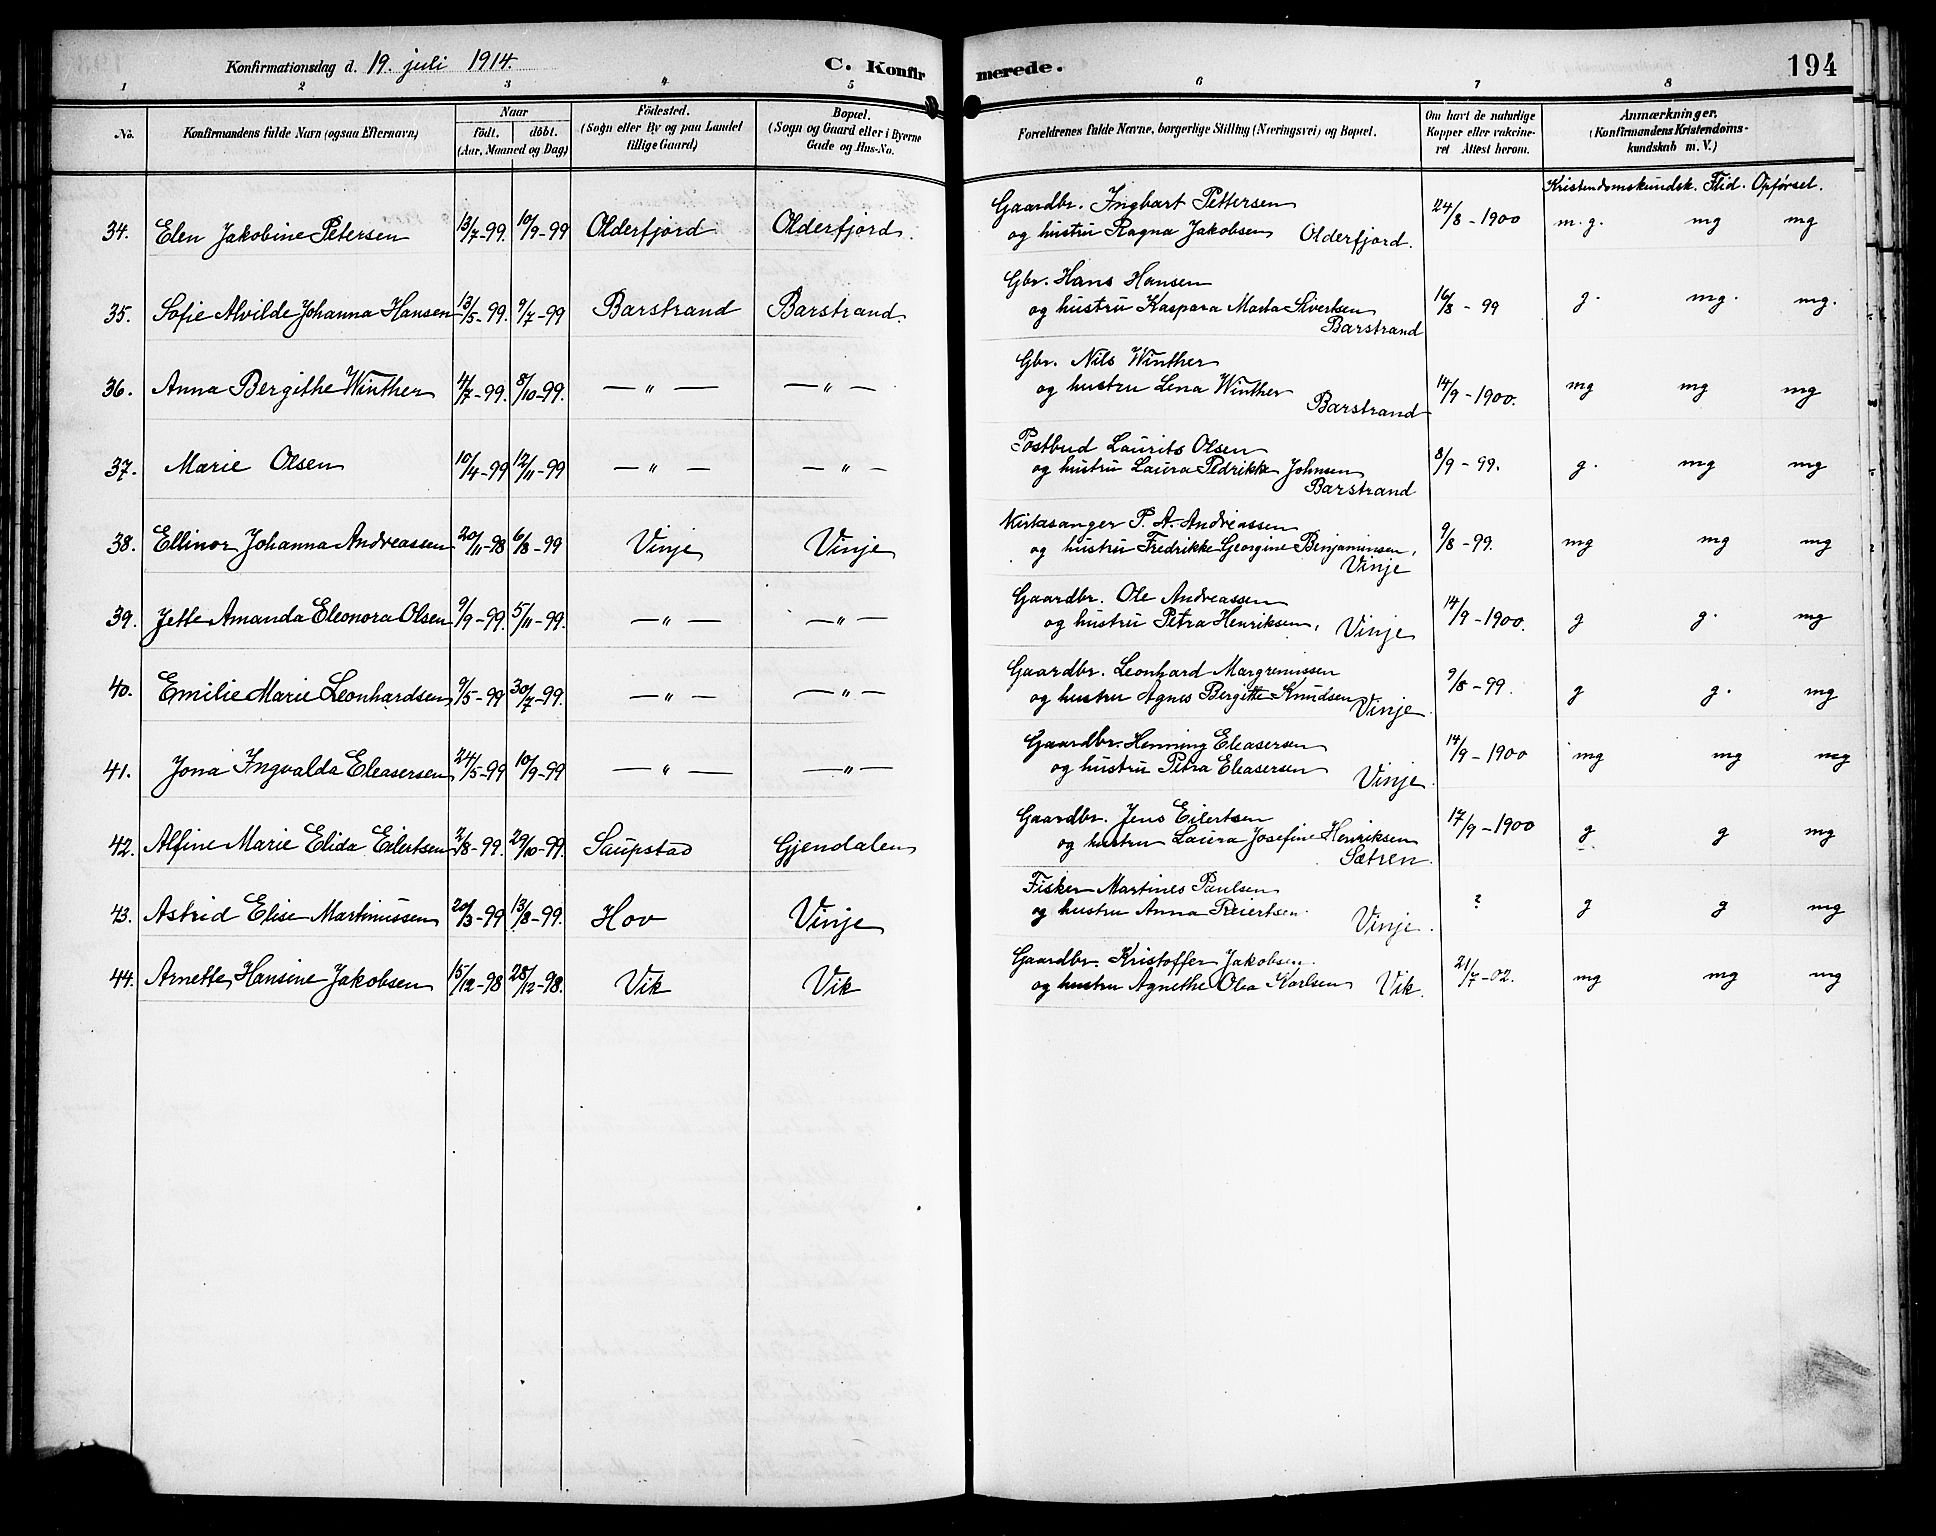 Konfirmationsdag d. 19. juli 1914. C. Konfirmerede. 194
1 2 3 4 5 6 7 8
No. Konfirmandens fulde Navn (ogsaa Efternavn) Naar født. døbt. (Aar, Maaned og Dag) Födested. (Sogn eller By og paa Landet tillige Gaard) Bopæl. (Sogn og Gaard eller i Byerne Gade og Hus-No. Forældrenes fulde Navne, borgerlige Stilling (Næringsvei) og Bopæl. Om havt de naturlige Kopper eller vaccineret Attest herom. Anmærkninger. (Konfirmandens Kristendomskundskab m. V.)
Kristendomskundsk. Flid. Opførsel.
34. Elen Jakobine Petersen 13/7-99. 10/9-99 Olderfjord Olderfjord. Gaardbr. Ingbart Pettersen 24/8-1900 m.g. mg mg
og hustru Ragna Jakobsen Olderfjord.
35. Sofie Alvilde Johanna Hansen 13/5-99. 9/7-99 Barstrand Barstrand. Gbr. Hans Hansen 16/8-99 g. mg. mg.
og hustru Kaspara Marta Sivertsen
Barstrand
36. Anna Bergithe Winther 4/7-99. 8/10-99. — " — — " — Gbr. Nils Winther 14/9-1900. mg mg mg
og hustru Lena Winther
Barstrand
37. Marie Olsen 10/4-99 12/11-99 — " — — " — Postbud Laurits Olsen 8/9-99. g. mg mg
og hustru Laura Pedrikke Johnsen
Barstrand
38. Ellinor Johanna Andreasen 20/11-98 6/8-99 Vinje Vinje Kirkesanger P. A. Andreassen 9/8-99. mg mg mg
og hustru Fredrikke Georgine Benjaminsen,
Vinje
39. Jette Amanda Eleonora Olsen 9/9-99. 5/11-99. — " — — " — Gaardbr. Ole Andreassen 14/9-1900. g g. mg
og hustru Petra Henriksen, Vinje
40. Emilie Marie Leonhardsen 9/5-99 30/7-99. — " — — " — Gaardbr. Leonhard Margremissen 9/8-99. g g. mg
og hustru Agnes Bergitte Knudsen Vinje
41. Jona Ingvalda Eleasersen 24/5-99 10/9-99 — " — — " — Gaardbr. Henning Eleasersen 14/9-1900 mg mg mg
og hustru Petra Eleasersen Vinje.
42. Alfine Marie Elida Eilertsen 2/8-99. 29/10-99. Saupstad Gjendalen Gaardbr. Jens Eilertsen 17/9-1900 g g mg
og hustru Laura Josefine Henriksen
Sætren.
43. Astrid Elise Martinussen 20/3-99 13/8-99. Hov Vinje Fisker Martines Paulsen ? g g mg
og hustru Anna Reiertsen. Vinje.
44. Arnette Hansine Jakobsen 15/12-98 28/12-98. Vik Vik Gaardbr. Kristoffer Jakobsen. 21/7-02. mg mg mg
og hustru Agnethe Olea Karlsen Vik.